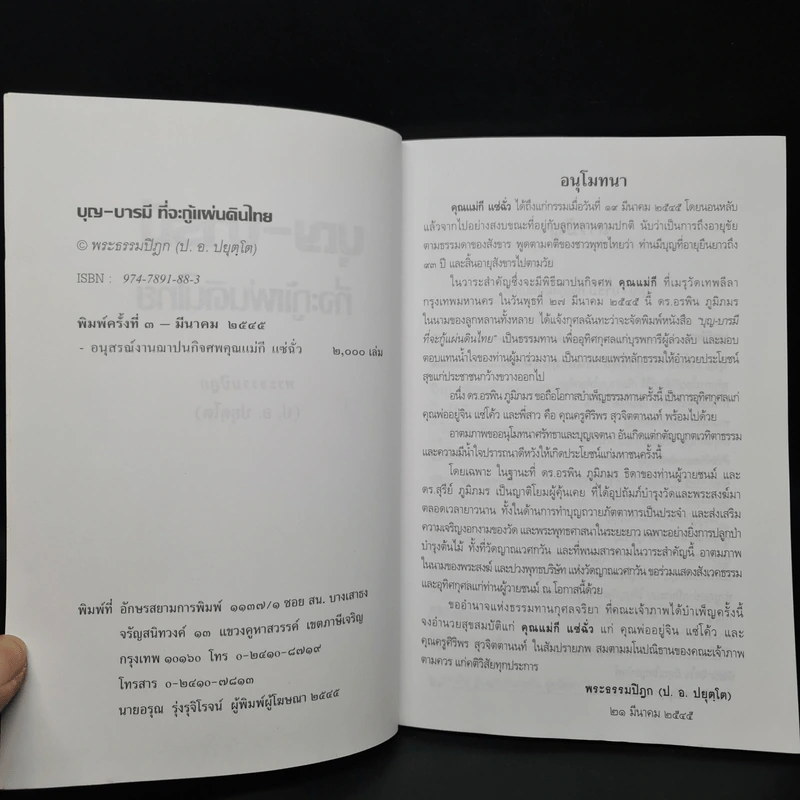 บุญ-บารมี ที่จะกู้แผ่นดินไทย
© พระธรรมปิฎก (ป. อ. ปยุตฺโต)
ISBN : 974-7891-88-3
พิมพ์ครั้งที่ ๓ – มีนาคม ๒๕๔๕
- อนุสรณ์งานฌาปนกิจศพคุณแม่กี แซ่ฉั่ว ๒,๐๐๐ เล่ม
พิมพ์ที่ อักษรสยามการพิมพ์ ๑๑๓๗/๑ ซอย สน. บางเสาธง
จรัญสนิทวงศ์ ๑๓ แขวงคูหาสวรรค์ เขตภาษีเจริญ
กรุงเทพ ๑๐๑๖๐ โทร ๐-๒๔๑๐-๘๗๑๙
โทรสาร ๐-๒๔๑๐-๗๘๑๓
นายอรุณ รุ่งรุจิโรจน์ ผู้พิมพ์ผู้โฆษณา ๒๕๔๕
อนุโมทนา
คุณแม่กี แซ่ฉั่ว ได้ถึงแก่กรรมเมื่อวันที่ ๑๙ มีนาคม ๒๕๔๕ โดยนอนหลับ
แล้วจากไปอย่างสงบขณะที่อยู่กับลูกหลานตามปกติ นับว่าเป็นการถึงอายุขัย
ตามธรรมดาของสังขาร พูดตามคติของชาวพุทธไทยว่า ท่านมีบุญที่อายุยืนยาวถึง
๙๓ ปี และสิ้นอายุสังขารไปตามวัย
ในวาระสำคัญซึ่งจะมีพิธีฌาปนกิจศพ คุณแม่กี ที่เมรุวัดเทพลีลา
กรุงเทพมหานคร ในวันพุธที่ ๒๗ มีนาคม ๒๕๔๕ นี้ ดร.อรพิน ภูมิภมร
ในนามของลูกหลานทั้งหลาย ได้แจ้งกุศลฉันทะว่าจะจัดพิมพ์หนังสือ "บุญ-บารมี
ที่จะกู้แผ่นดินไทย" เป็นธรรมทาน เพื่ออุทิศกุศลแก่บุรพการีผู้ล่วงลับ และมอบ
ตอบแทนน้ำใจของท่านผู้มาร่วมงาน เป็นการเผยแพร่หลักธรรมให้อำนวยประโยชน์
สุขแก่ประชาชนกว้างขวางออกไป
อนึ่ง ดร.อรพิน ภูมิภมร ขอถือโอกาสบำเพ็ญธรรมทานครั้งนี้ เป็นการอุทิศกุศลแก่
คุณพ่ออยู่จิน แซ่โค้ว และพี่สาว คือ คุณครูศิริพร สุวจิตตานนท์ พร้อมไปด้วย
อาตมภาพขออนุโมทนาศรัทธาและบุญเจตนา อันเกิดแต่กตัญญูกตเวทิตาธรรม
และความมีน้ำใจปรารถนาดีหวังให้เกิดประโยชน์แก่มหาชนครั้งนี้
โดยเฉพาะ ในฐานะที่ ดร.อรพิน ภูมิภมร ธิดาของท่านผู้วายชนม์ และ
ดร.สุรีย์ ภูมิภมร เป็นญาติโยมผู้คุ้นเคย ที่ได้อุปถัมภ์บำรุงวัดและพระสงฆ์มา
ตลอดเวลายาวนาน ทั้งในด้านการทำบุญถวายภัตตาหารเป็นประจำ และส่งเสริม
ความเจริญงอกงามของวัด และพระพุทธศาสนาในระยะยาว เฉพาะอย่างยิ่งการปลูกป่า
บำรุงต้นไม้ ทั้งที่วัดญาณเวศกวัน และที่พนมสารคามในวาระสำคัญนี้ อาตมภาพ
ในนามของพระสงฆ์ และปวงพุทธบริษัท แห่งวัดญาณเวศกวัน ขอร่วมแสดงสังเวคธรรม
และอุทิศกุศลแก่ท่านผู้วายชนม์ ณ โอกาสนี้ด้วย
ขออำนาจแห่งธรรมทานกุศลจริยา ที่คณะเจ้าภาพได้บำเพ็ญครั้งนี้
จงอำนวยสุขสมบัติแก่ คุณแม่กี แซ่ฉั่ว แก่ คุณพ่ออยู่จิน แซ่โค้ว และ
คุณครูศิริพร สุวจิตตานนท์ ในสัมปรายภพ สมตามมโนปณิธานของคณะเจ้าภาพ
ตามควร แก่คติวิสัยทุกประการ
พระธรรมปิฎก (ป. อ. ปยุตฺโต)
๒๑ มีนาคม ๒๕๔๕